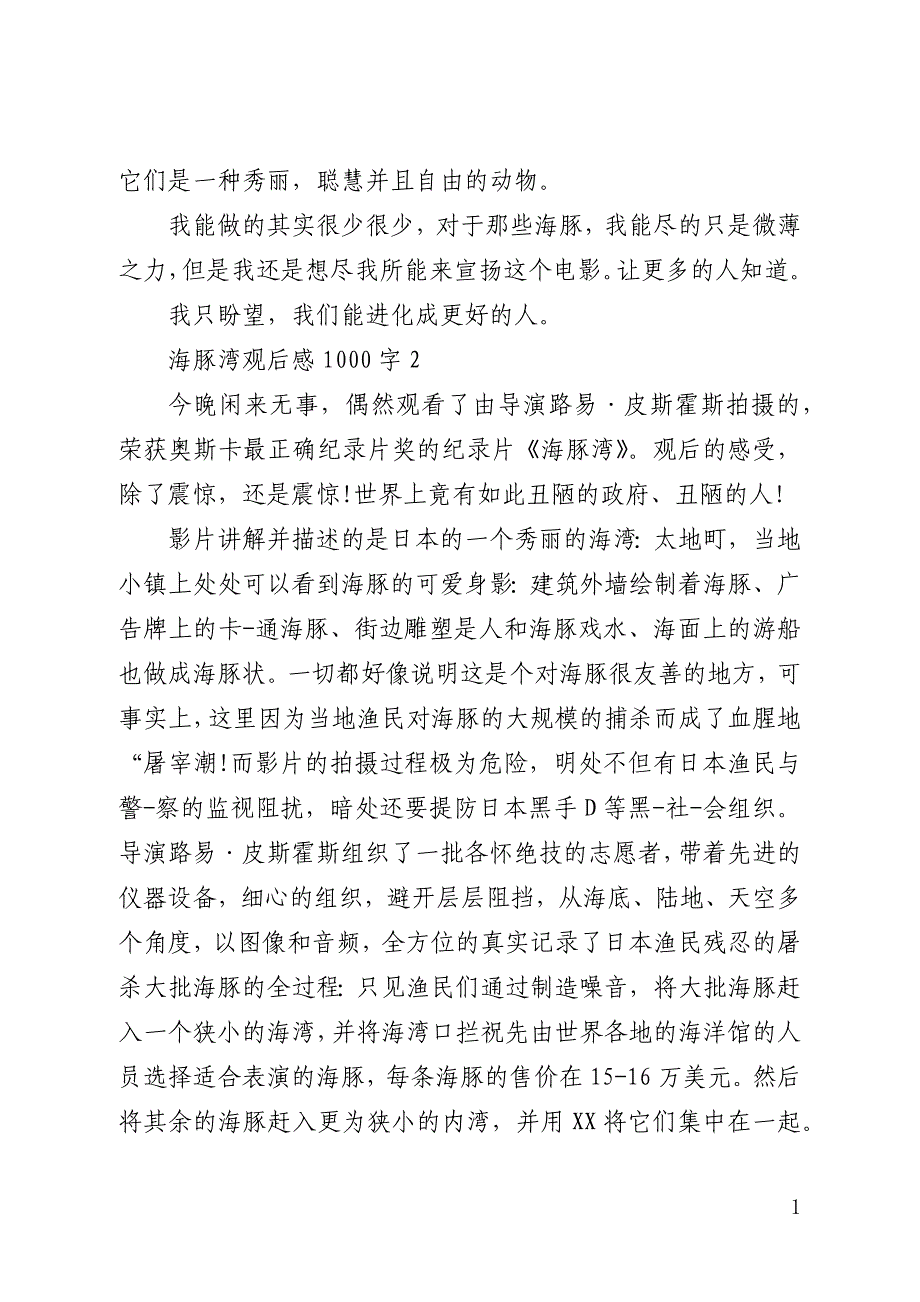 它们是一种秀丽，聪慧并且自由的动物。
我能做的其实很少很少，对于那些海豚，我能尽的只是微薄
之力，但是我还是想尽我所能来宣扬这个电影。让更多的人知道。
我只盼望，我们能进化成更好的人。
海豚湾观后感 1000 字 2
今晚闲来无事，偶然观看了由导演路易·皮斯霍斯拍摄的，
荣获奥斯卡最正确纪录片奖的纪录片《海豚湾》。观后的感受，
除了震惊，还是震惊!世界上竟有如此丑陋的政府、丑陋的人!
影片讲解并描述的是日本的一个秀丽的海湾：太地町，当地
小镇上处处可以看到海豚的可爱身影：建筑外墙绘制着海豚、广
告牌上的卡-通海豚、街边雕塑是人和海豚戏水、海面上的游船
也做成海豚状。一切都好像说明这是个对海豚很友善的地方，可
事实上，这里因为当地渔民对海豚的大规模的捕杀而成了血腥地
“屠宰潮!而影片的拍摄过程极为危险，明处不但有日本渔民与
警-察的监视阻扰，暗处还要提防日本黑手 D 等黑-社-会组织。
导演路易·皮斯霍斯组织了一批各怀绝技的志愿者，带着先进的
仪器设备，细心的组织，避开层层阻挡，从海底、陆地、天空多
个角度，以图像和音频，全方位的真实记录了日本渔民残忍的屠
杀大批海豚的全过程：只见渔民们通过制造噪音，将大批海豚赶
入一个狭小的海湾，并将海湾口拦祝先由世界各地的海洋馆的人
员选择适合表演的海豚，每条海豚的售价在 15-16 万美元。然后
将其余的海豚赶入更为狭小的内湾，并用 XX 将它们集中在一起。
1